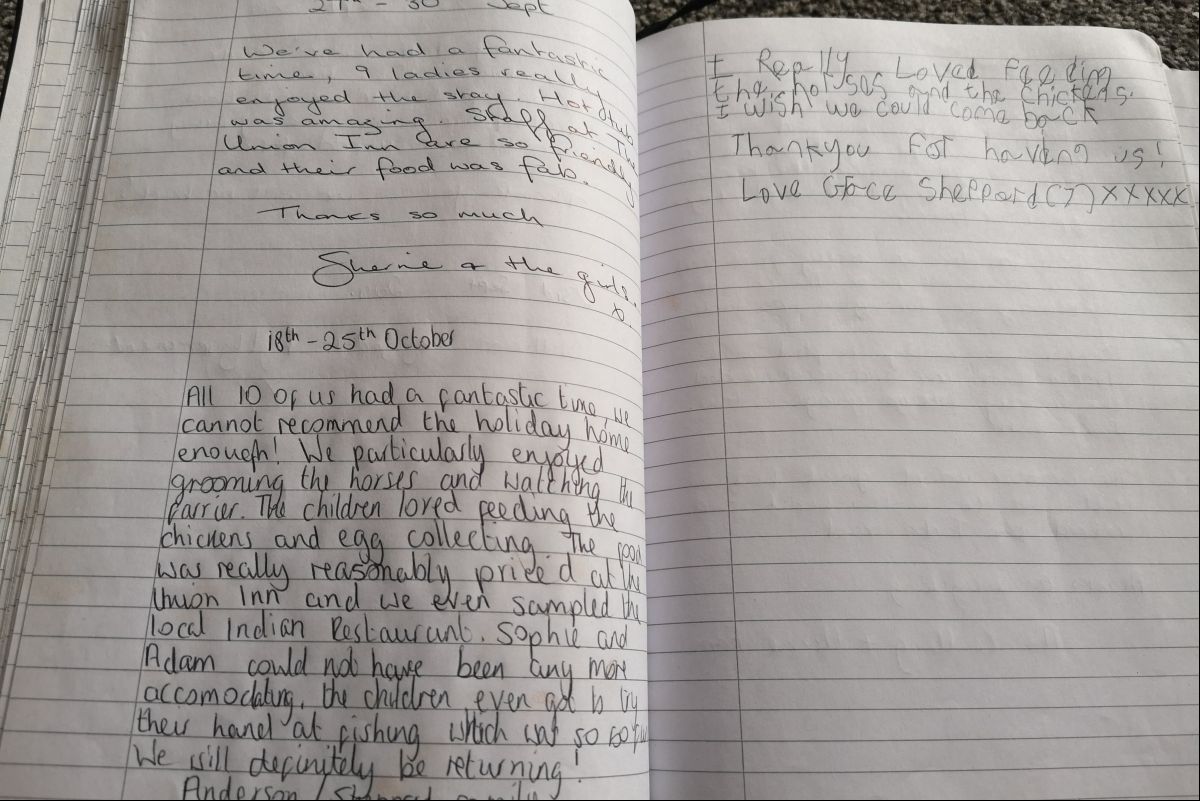 27th - 30 Sept
We've had a fantastic
time, 9 ladies really
enjoyed the stay. Hot tub
was amazing. Staff at The
Union Inn are so friendly
and their food was fab.
Thanks so much
Sherrie & the girls.
x.
18th - 25th October
All 10 of us had a fantastic time, we
cannot recommend the holiday home
enough! We particularly enjoyed
grooming the horses and watching the
farrier. The children loved feeding the
chickens and egg collecting. The food
was really reasonably price'd at the
Union Inn and we even sampled the
local Indian Restaurant. Sophie and
Adam could not have been any more
accomodating, the children even got to try
their hand at fishing which was so
We will definitely be returning!
Anderson / Sheppard family
I Really Loved Feeding
the horses and the chickens.
I wish we could come back
Thankyou for having us!
Love Grace Sheppard (7) xxxxx